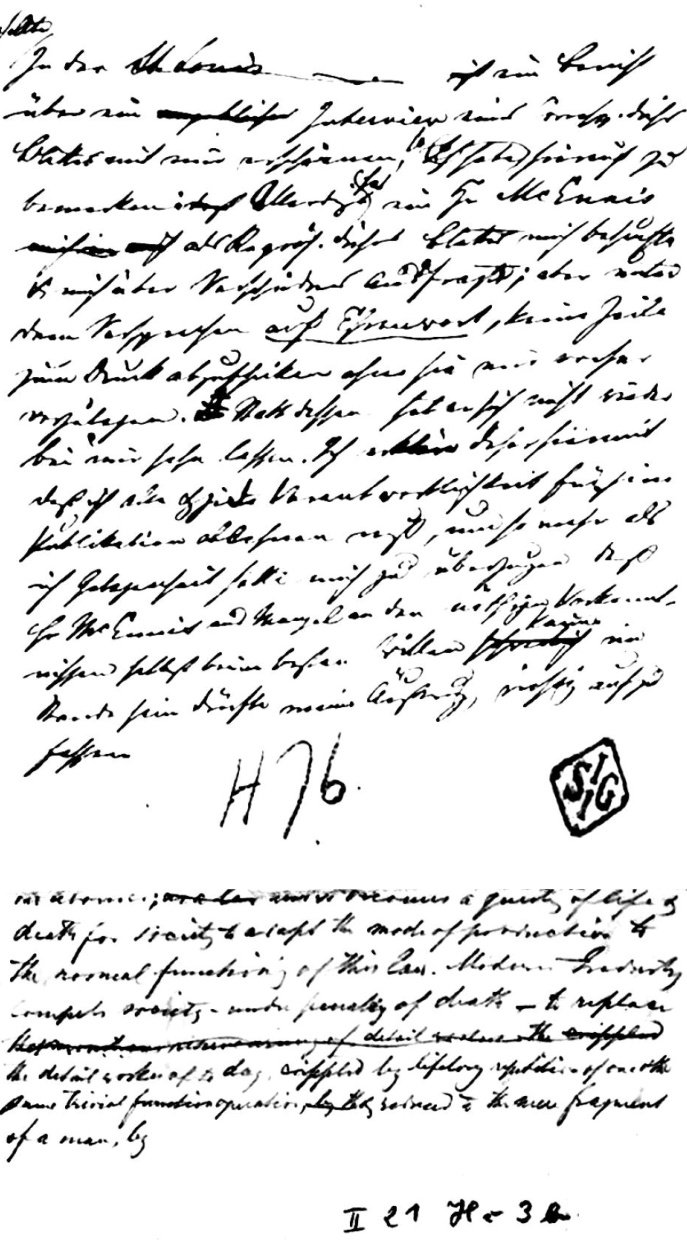 In der St Louis ist ein Bericht
über ein angebliches Interview eines Corresp. dieses
Blattes mit mir erschienen, Ich habe hierauf zu
bemerken: Allerdgs hat ein Hr McEnnis
als Repräs. dieses Blattes mich besucht
& mich über Verschiednes ausfragt; aber unter
dem Versprechen auf Ehrenwort, keine Zeile
zum Druck abzuschicken ohne sie mir vorher
vorzulegen. Statt dessen hat er sich nicht wieder
bei mir sehn lassen. Ich erkläre daher hiermit
daß ich alle & jede Verantwortlichkeit für seine
Publikation ablehnen muß, um so mehr als
ich Gelegenheit hatte mich zu überzeugen daß
Hr McEnnis aus Mangel an den nöthigen Vorkennt-
nissen selbst beim besten Willen kaum im
Stande sein dürfte meine Äußerg, richtig aufzu
fassen
H 76
SIIG
becomes a question of life &
death for society to adapt the mode of production to
the normal functioning of this law. Modern Industry
compels society - under penalty of death - to replace
of detail the crippled
the detail worker of to day, crippled by lifelong repetition of one & the
same trivial operation, reduced to the mere fragment
of a man, by
II 21 H = 3